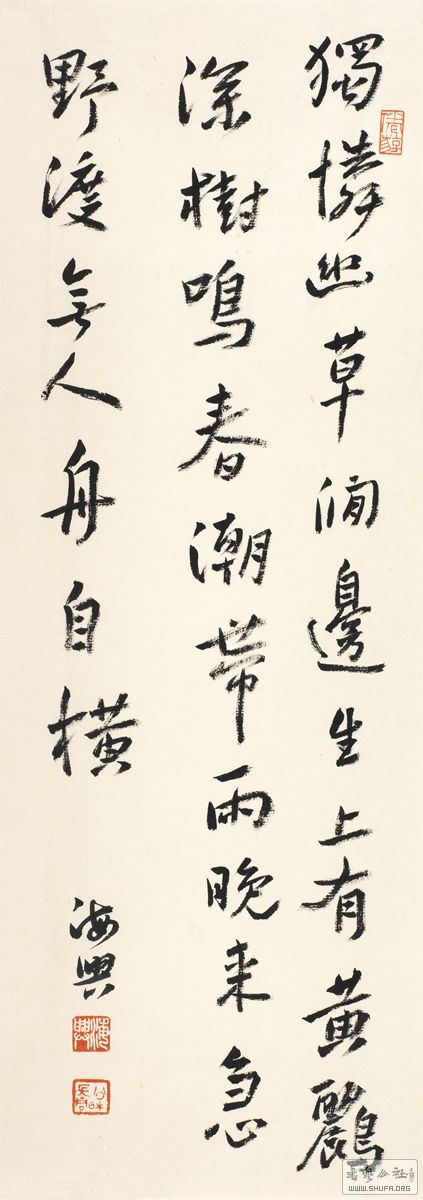 獨憐幽草澗邊生上有黃鸝
深樹鳴春潮帶雨晚来急
野渡無人舟自橫
海興
海興
書法公社
WWW.SHUFA.ORG